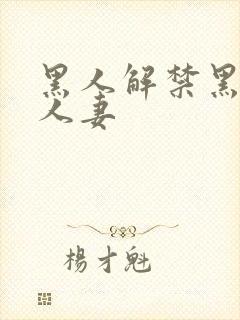 黑人解禁黑
人妻
楊才魁